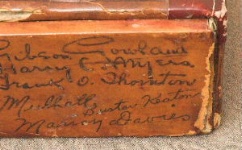 Gibson Gowland
Harry C. Myers
Frank O. Thornton
Mulhall
Buster Keaton
Davies